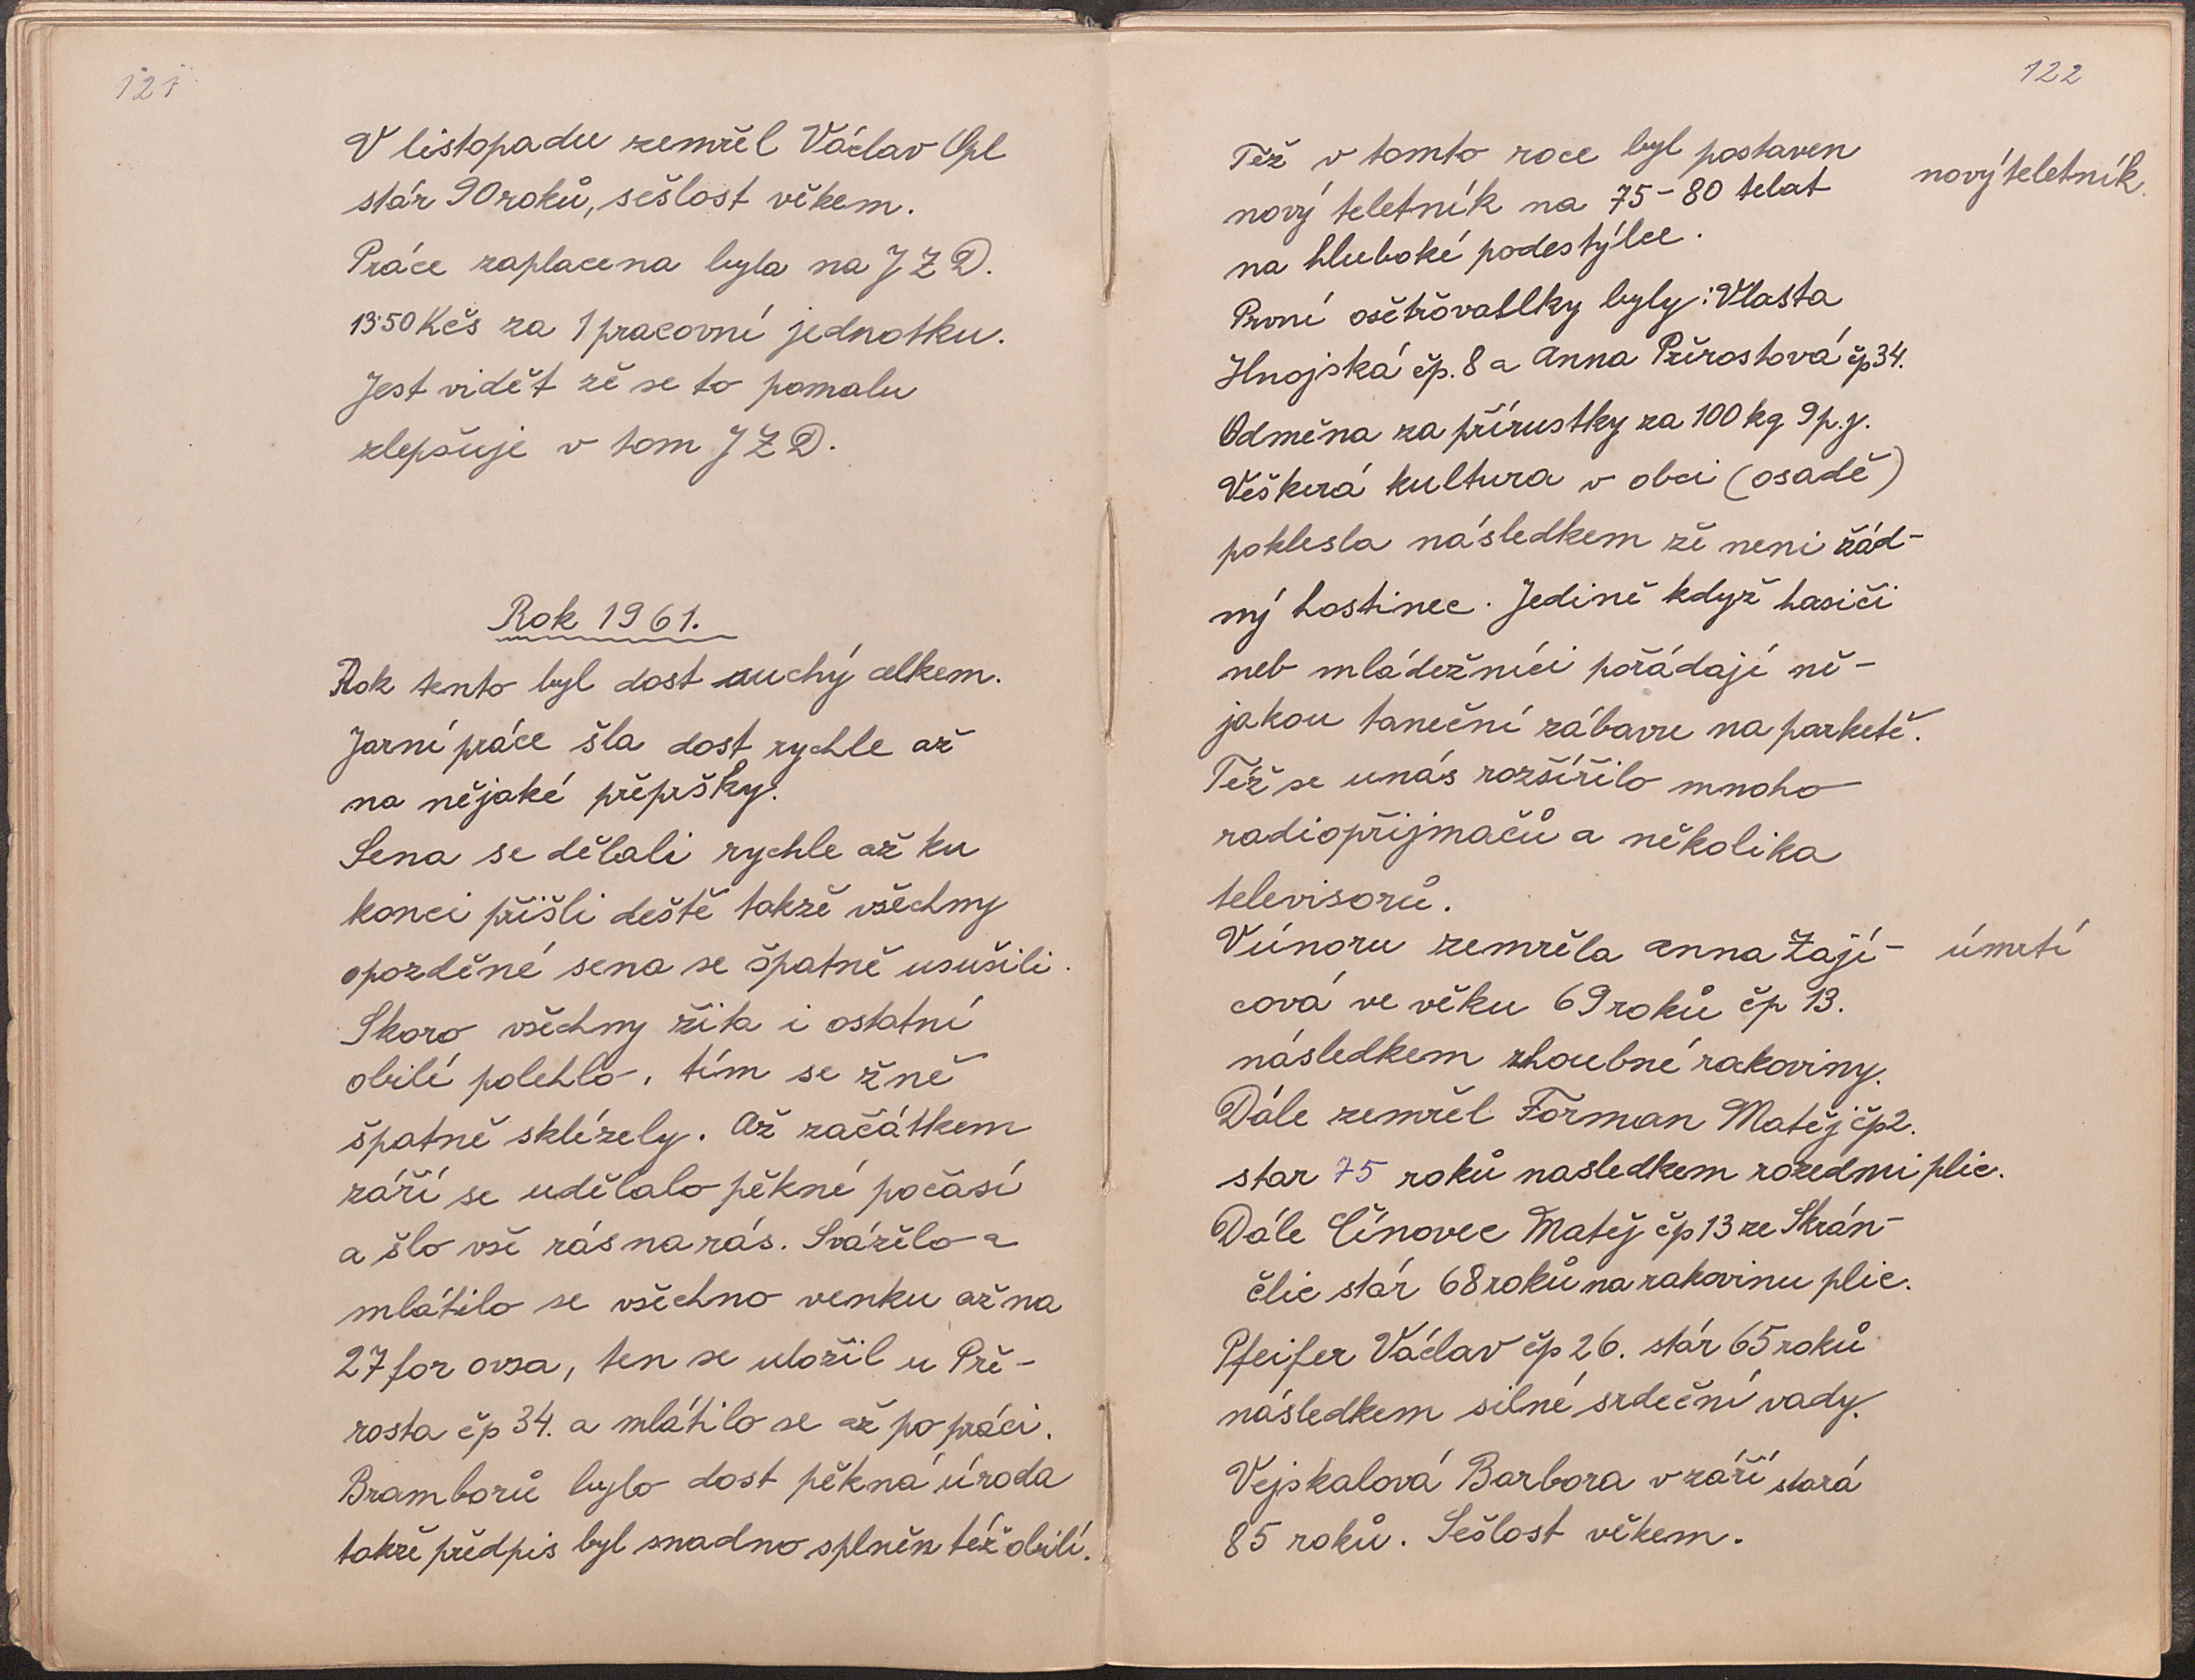 121
V listopadu zemřel Václav Opl
stár 90 roků, sešlost věkem.
Práce zaplacena byla na JZD.
13·50 Kčs za 1 pracovní jednotku.
Jest vidět že se to pomalu
zlepšuje v tom JZD.
Rok 1961.
Rok tento byl dost suchý celkem.
Jarní práce šla dost rychle až
na nějaké přepršky.
Sena se dělali rychle až ku
konci přišli deště takže všechny
opozděné sena se špatně usušili.
Skoro všechny žita i ostatní
obilí polehlo, tím se žně
špatně sklízely. Až začátkem
září se udělalo pěkné počasí
a šlo vše rás na rás. Sváželo a
mlátilo se všechno venku až na
27 for ovsa, ten se uložil u Pře-
rosta čp 34. a mlátilo se až po práci.
Bramborů bylo dost pěkná úroda
takže předpis byl snadno splněn též obilí.
122
Též v tomto roce byl postaven
nový teletník na 75-80 telat
na hluboké podestýlce.
nový teletník.
První ošetřovatlky byly: Vlasta
Hnojská čp. 8 a Anna Přerostová čp 34.
Odměna za přírustky za 100 kg 9 p.j.
Veškerá kultura v obci (osadě)
poklesla následkem že neni žád-
ný hostinec. Jedině když hasiči
neb mládežníci pořádají ně-
jakou taneční zábavu na parketě.
Též se unás rozšířilo mnoho
radiopřijmačů a několika
televisorů.
Vúnoru zemřela Anna Zají-
úmrtí
cová ve věku 69 roků čp 13.
následkem zhoubné rakoviny.
Dále zemřel Forman Matěj čp 2.
star 75 roků nasledkem rozedmi plic.
Dále Línovec Matěj čp 13 ze Skrán-
člic stár 68 roků na rakovinu plic.
Pfeifer Václav čp 26. stár 65 roků
následkem silné srdeční vady.
Vejskalová Barbora v září stará
85 roků. Sešlost věkem.